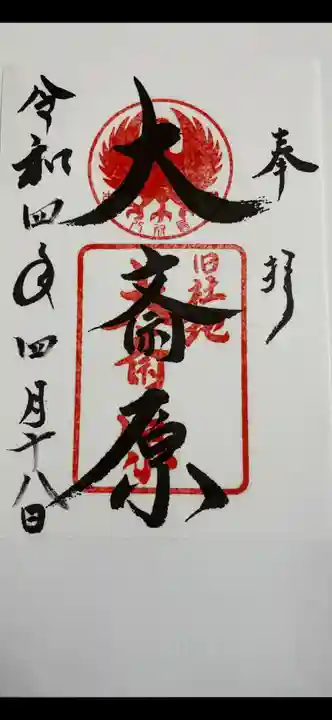 奉拝
大斎原
旧社地
令和四年四月十八日